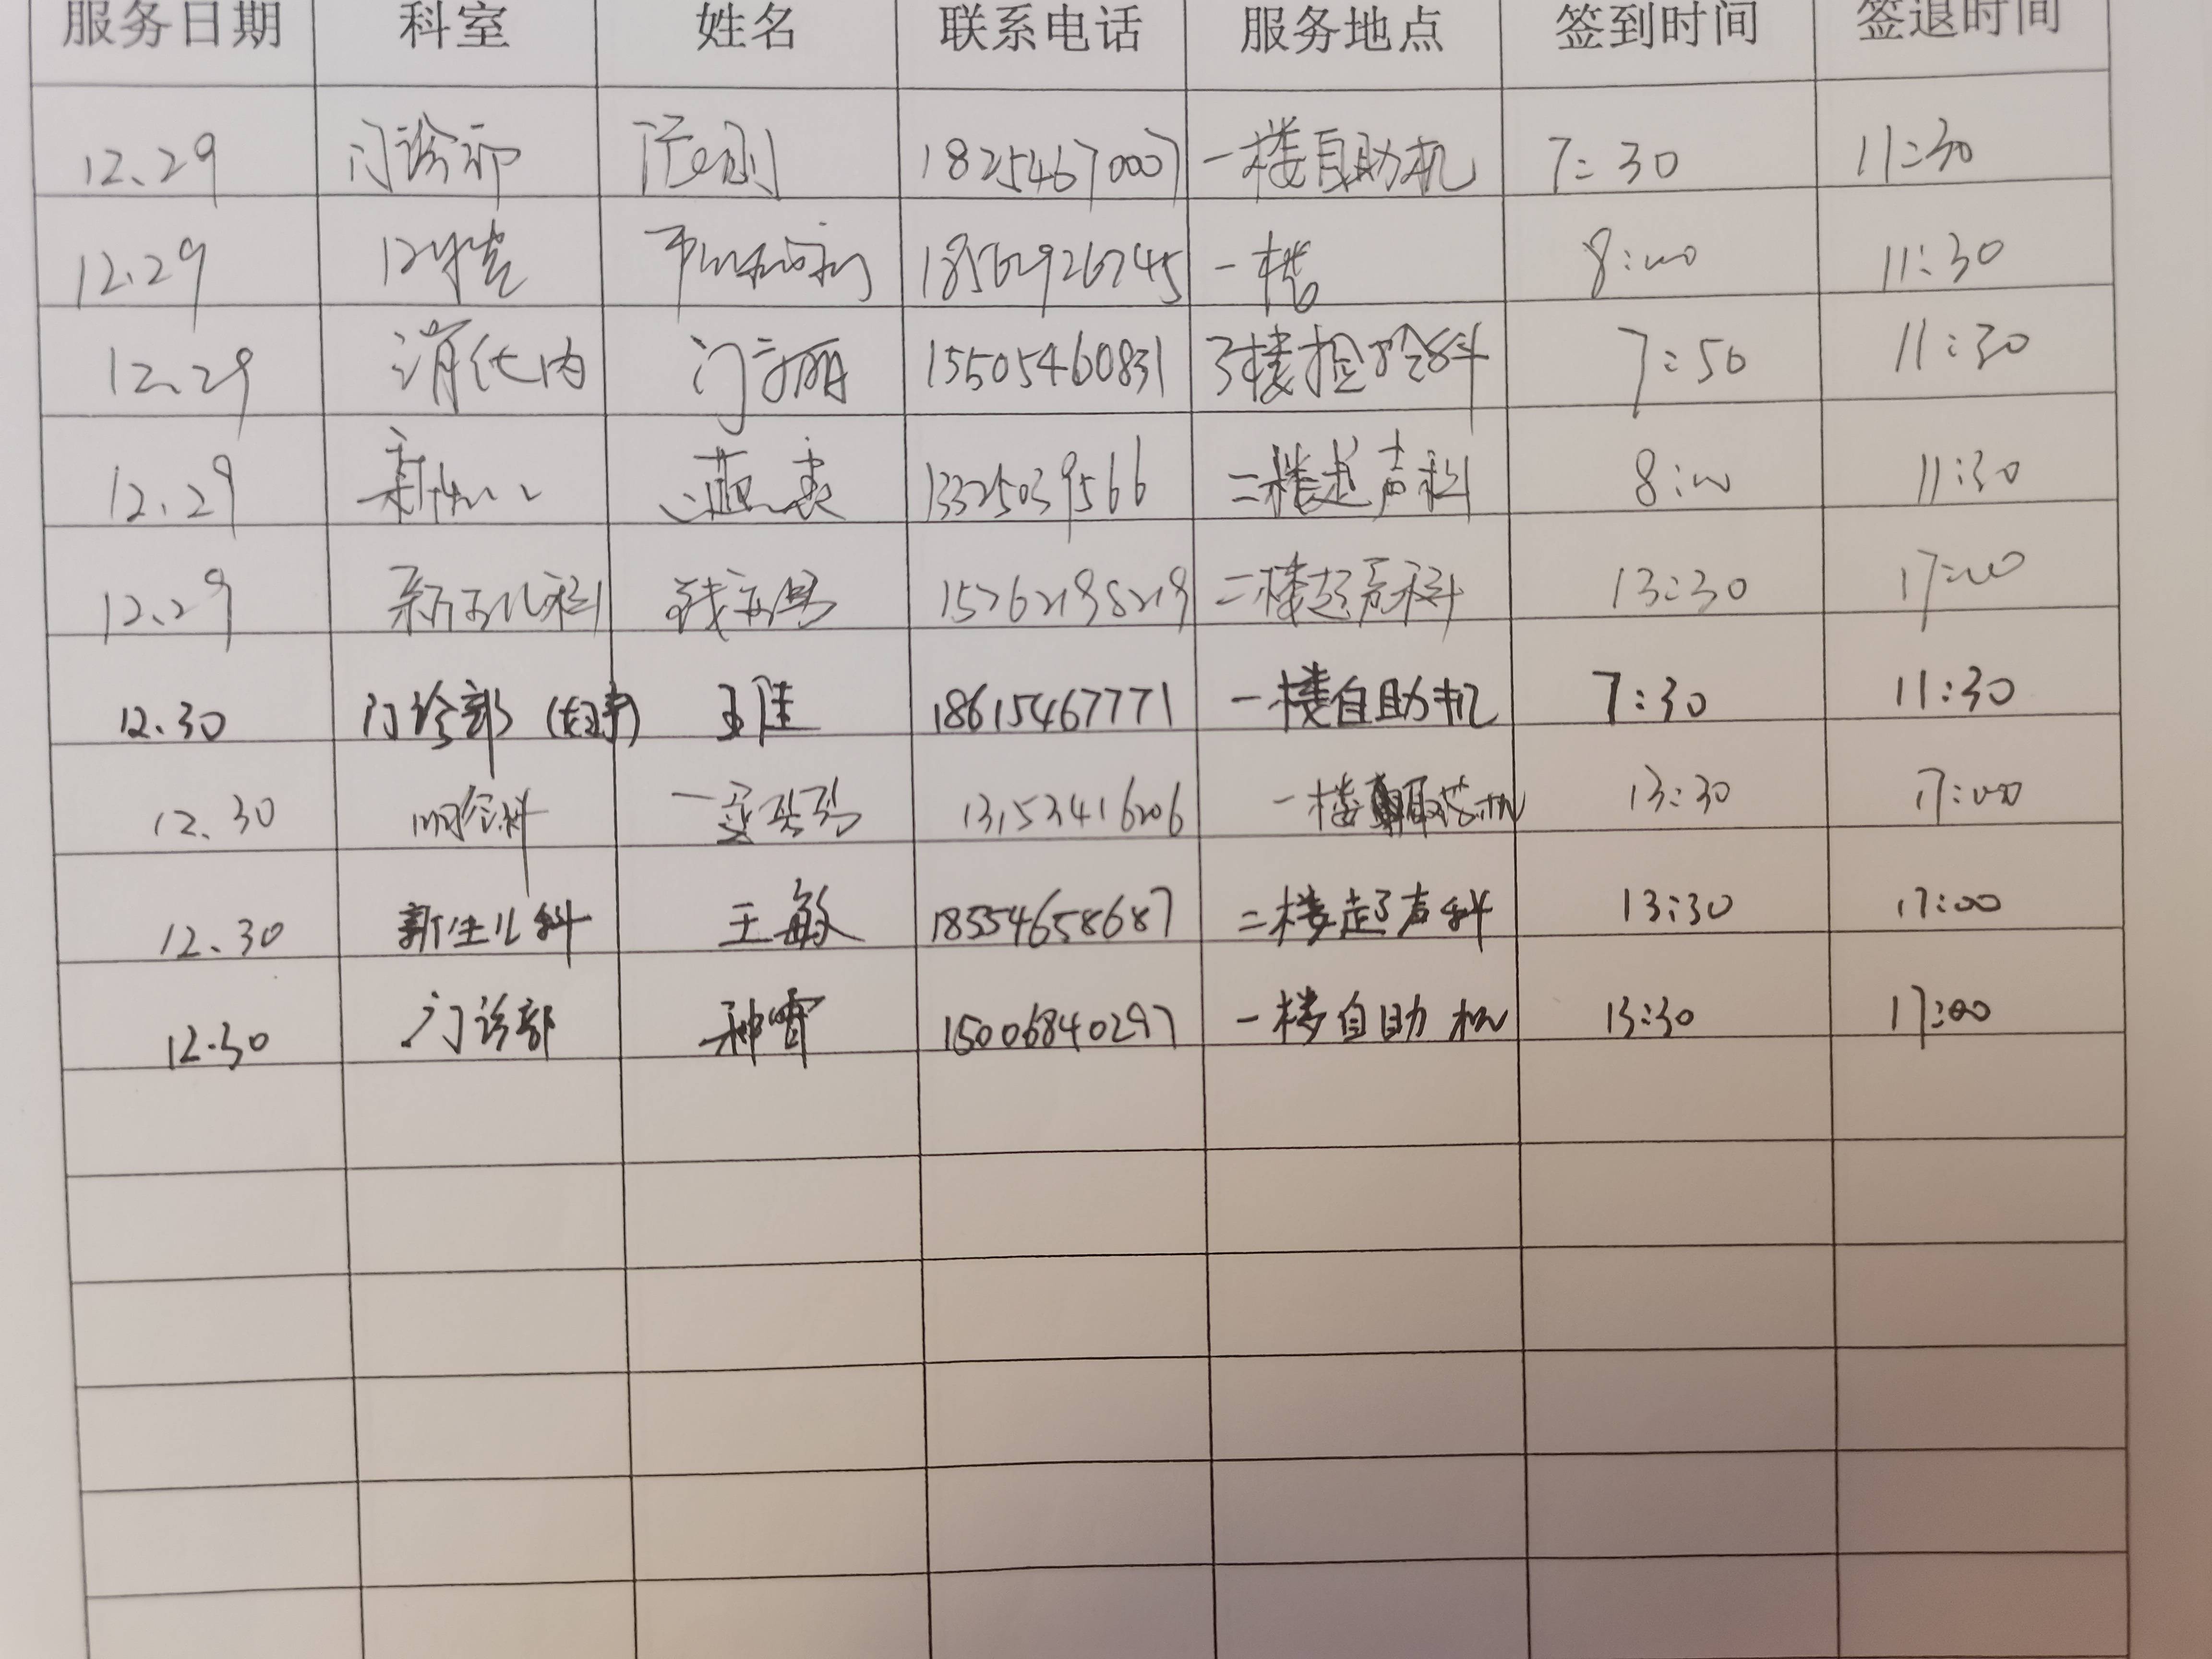 服务日期 科室 姓名 联系电话 服务地点 签到时间 签退时间
12.29 门诊部 18254670007 一楼自助机 7:30 11:30
12.29 18562926745 一楼 8:00 11:30
12.29 消化内 门立丽 15505460831 3楼检验科 7:50 11:30
12.29 13325039566 二楼超声科 8:00 11:30
12.29 新生儿科 15262198219 二楼超声科 13:30 17:00
12.30 门诊部 王佳 18615467771 一楼自助机 7:30 11:30
12.30 13153416206 一楼 13:30 17:00
12.30 新生儿科 王敏 18554658687 二楼超声科 13:30 17:00
12.30 门诊部 种雷 15006840297 一楼自助机 13:30 17:00